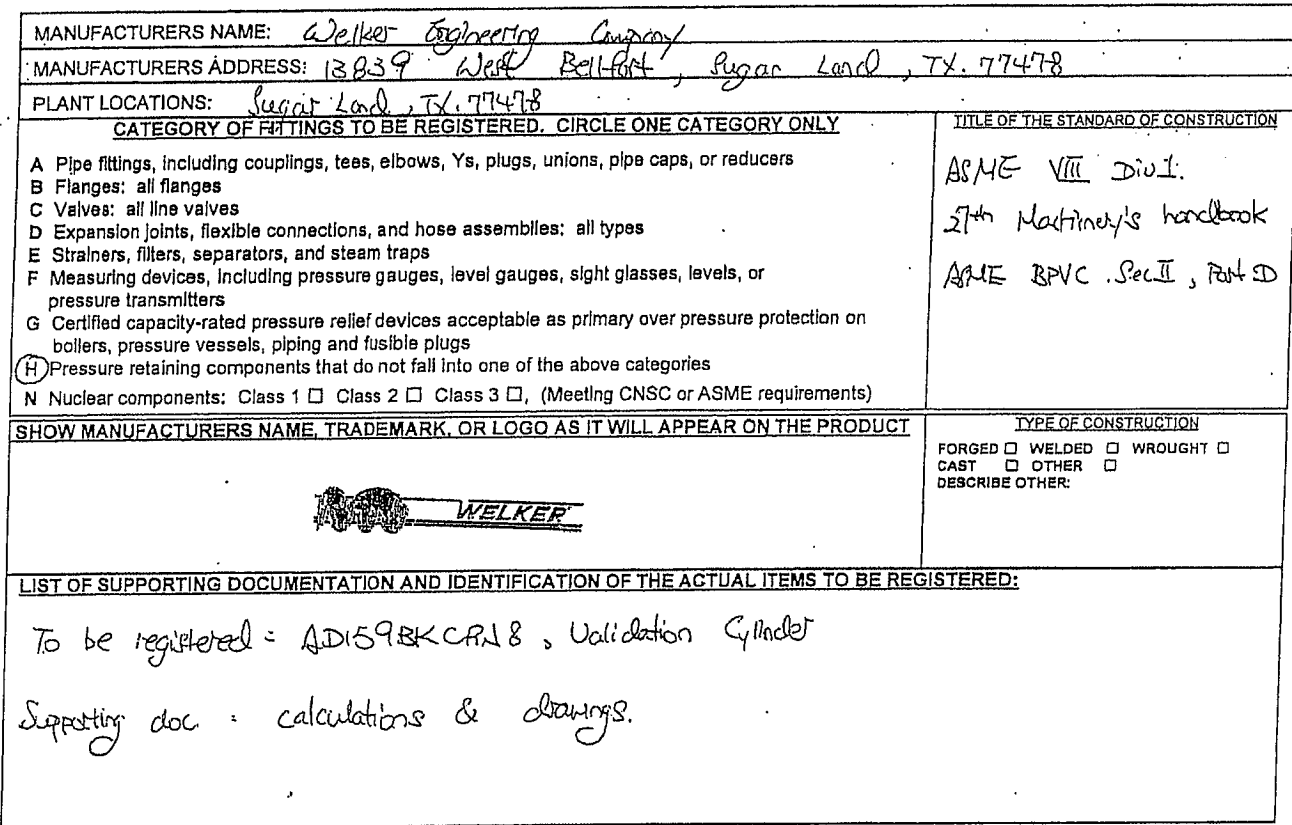 MANUFACTURERS NAME: Welker Engineering Company
MANUFACTURERS ADDRESS: 13839 West Bellfort, Sugar Land, TX. 77478
PLANT LOCATIONS: Sugar Land, TX. 77478
CATEGORY OF FITTINGS TO BE REGISTERED. CIRCLE ONE CATEGORY ONLY
A Pipe fittings, including couplings, tees, elbows, Ys, plugs, unions, pipe caps, or reducers
B Flanges: all flanges
C Valves: all line valves
D Expansion joints, flexible connections, and hose assemblies: all types
E Strainers, filters, separators, and steam traps
F Measuring devices, including pressure gauges, level gauges, sight glasses, levels, or
pressure transmitters
G Certified capacity-rated pressure relief devices acceptable as primary over pressure protection on
boilers, pressure vessels, piping and fusible plugs
H Pressure retaining components that do not fall into one of the above categories
N Nuclear components: Class 1 ☐ Class 2 ☐ Class 3 ☐, (Meeting CNSC or ASME requirements)
TITLE OF THE STANDARD OF CONSTRUCTION
ASME VIII Div 1.
27th Machinery's handbook
ASME BPVC .Sec II, Part D
SHOW MANUFACTURERS NAME, TRADEMARK, OR LOGO AS IT WILL APPEAR ON THE PRODUCT
WELKER
TYPE OF CONSTRUCTION
FORGED ☐ WELDED ☐ WROUGHT ☐
CAST ☐ OTHER ☐
DESCRIBE OTHER:
LIST OF SUPPORTING DOCUMENTATION AND IDENTIFICATION OF THE ACTUAL ITEMS TO BE REGISTERED:
To be registered = AD159BKCRN8, Validation Cylinder
Supporting doc : calculations & drawings.